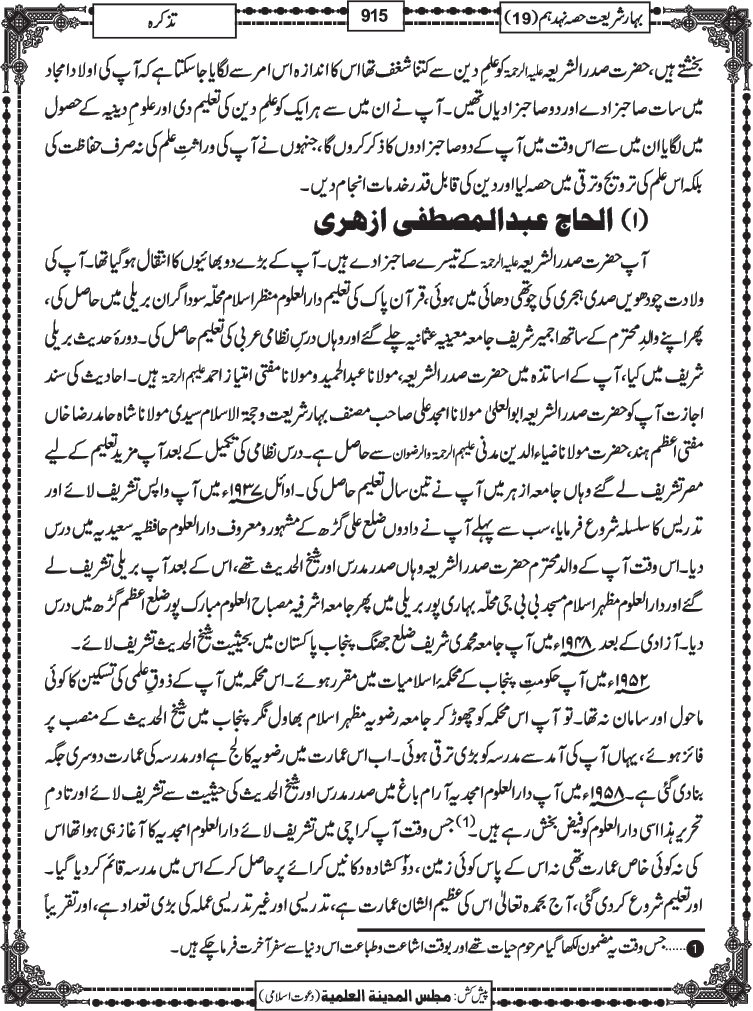 بہار شریعت حصہ نہدہم (19)
915
تذکرہ
بخشتے ہیں، حضرت صدر الشریعہ علیہ الرحمۃ کو علمِ دین سے کتنا شغف تھا اس کا اندازہ اس امر سے لگایا جاسکتا ہے کہ آپ کی اولاد امجاد
میں سات صاحبزادے اور دو صاحبزادیاں تھیں۔ آپ نے ان میں سے ہر ایک کو علمِ دین کی تعلیم دی اور علوم دینیہ کے حصول
میں لگایا ان میں سے اس وقت میں آپ کے دو صاحبزادوں کا ذکر کروں گا، جنہوں نے آپ کی وراثتِ علم کی نہ صرف حفاظت کی
بلکہ اس علم کی ترویج وترقی میں حصہ لیا اور دین کی قابل قدر خدمات انجام دیں۔
(۱) الحاج عبدالمصطفٰی ازھری
آپ حضرت صدر الشریعہ علیہ الرحمۃ کے تیسرے صاحبزادے ہیں۔ آپ کے بڑے دو بھائیوں کا انتقال ہوگیا تھا۔ آپ کی
ولادت چودھویں صدی ہجری کی چوتھی دھائی میں ہوئی، قرآن پاک کی تعلیم دارالعلوم منظر اسلام محلّہ سوداگران بریلی میں حاصل کی،
پھر اپنے والدِ محترم کے ساتھ اجمیر شریف جامعہ معینیہ عثمانیہ چلے گئے اور وہاں درسِ نظامی عربی کی تعلیم حاصل کی۔ دورۂ حدیث بریلی
شریف میں کیا، آپ کے اساتذہ میں حضرت صدر الشریعہ، مولانا عبدالحمید و مولانا مفتی امتیاز احمد علیہم الرحمۃ ہیں۔ احادیث کی سند
اجازت آپ کو حضرت صدر الشریعہ ابوالعلیٰ مولانا امجد علی صاحب مصنف بہار شریعت و حجۃ الاسلام سیدی مولانا شاہ حامد رضا خاں
مفتی اعظم ہند، حضرت مولانا ضیاء الدین مدنی علیہم الرحمۃ والرضوان سے حاصل ہے۔ درس نظامی کی تکمیل کے بعد آپ مزید تعلیم کے لیے
مصر تشریف لے گئے وہاں جامعہ ازہر میں آپ نے تین سال تعلیم حاصل کی۔ اوائل ۱۹۳۷ء میں آپ واپس تشریف لائے اور
تدریس کا سلسلہ شروع فرمایا، سب سے پہلے آپ نے دادوں ضلع علی گڑھ کے مشہور و معروف دارالعلوم حافظیہ سعیدیہ میں درس
دیا۔ اس وقت آپ کے والد محترم حضرت صدر الشریعہ وہاں صدر مدرس اور شیخ الحدیث تھے، اس کے بعد آپ بریلی تشریف لے
گئے اور دارالعلوم مظہر اسلام مسجد بی بی جی محلّہ بہاری پور بریلی میں پھر جامعہ اشرفیہ مصباح العلوم مبارک پور ضلع اعظم گڑھ میں درس
دیا۔ آزادی کے بعد ۱۹۴۸ء میں آپ جامعہ محمدی شریف ضلع جھنگ پنجاب پاکستان میں بحیثیت شیخ الحدیث تشریف لائے۔
۱۹۵۲ء میں آپ حکومتِ پنجاب کے محکمۂ اسلامیات میں مقرر ہوئے۔ اس محکمہ میں آپ کے ذوقِ علمی کی تسکین کا کوئی
ماحول اور سامان نہ تھا۔ تو آپ اس محکمہ کو چھوڑ کر جامعہ رضویہ مظہر اسلام بھاول نگر پنجاب میں شیخ الحدیث کے منصب پر
فائز ہوئے، یہاں آپ کی آمد سے مدرسہ کو بڑی ترقی ہوئی۔ اب اس عمارت میں رضویہ کالج ہے اور مدرسہ کی عمارت دوسری جگہ
بنادی گئی ہے۔ ۱۹۵۸ء میں آپ دارالعلوم امجدیہ آرام باغ میں صدر مدرس اور شیخ الحدیث کی حیثیت سے تشریف لائے اور تادمِ
تحریر ہذا اسی دارالعلوم کو فیض بخش رہے ہیں۔(1) جس وقت آپ کراچی میں تشریف لائے دارالعلوم امجدیہ کا آغاز ہی ہوا تھا اس
کی نہ کوئی خاص عمارت تھی نہ اس کے پاس کوئی زمین، دو کشادہ دکانیں کرائے پر حاصل کرکے اس میں مدرسہ قائم کردیا گیا۔
اور تعلیم شروع کردی گئی، آج بحمدہ تعالیٰ اس کی عظیم الشان عمارت ہے، تدریسی اور غیر تدریسی عملہ کی بڑی تعداد ہے، اور تقریباً
1 ......جس وقت یہ مضمون لکھا گیا مرحوم حیات تھے اور بوقت اشاعت وطباعت اس دنیا سے سفر آخرت فرماچکے ہیں۔
پیش کش: مجلس المدینۃ العلمیۃ (دعوت اسلامی)